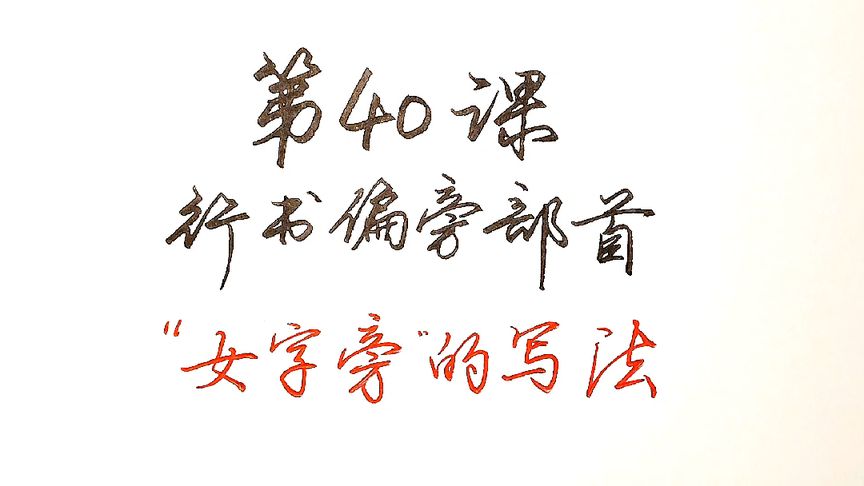 第40课
行书偏旁部首
“女字旁”的写法